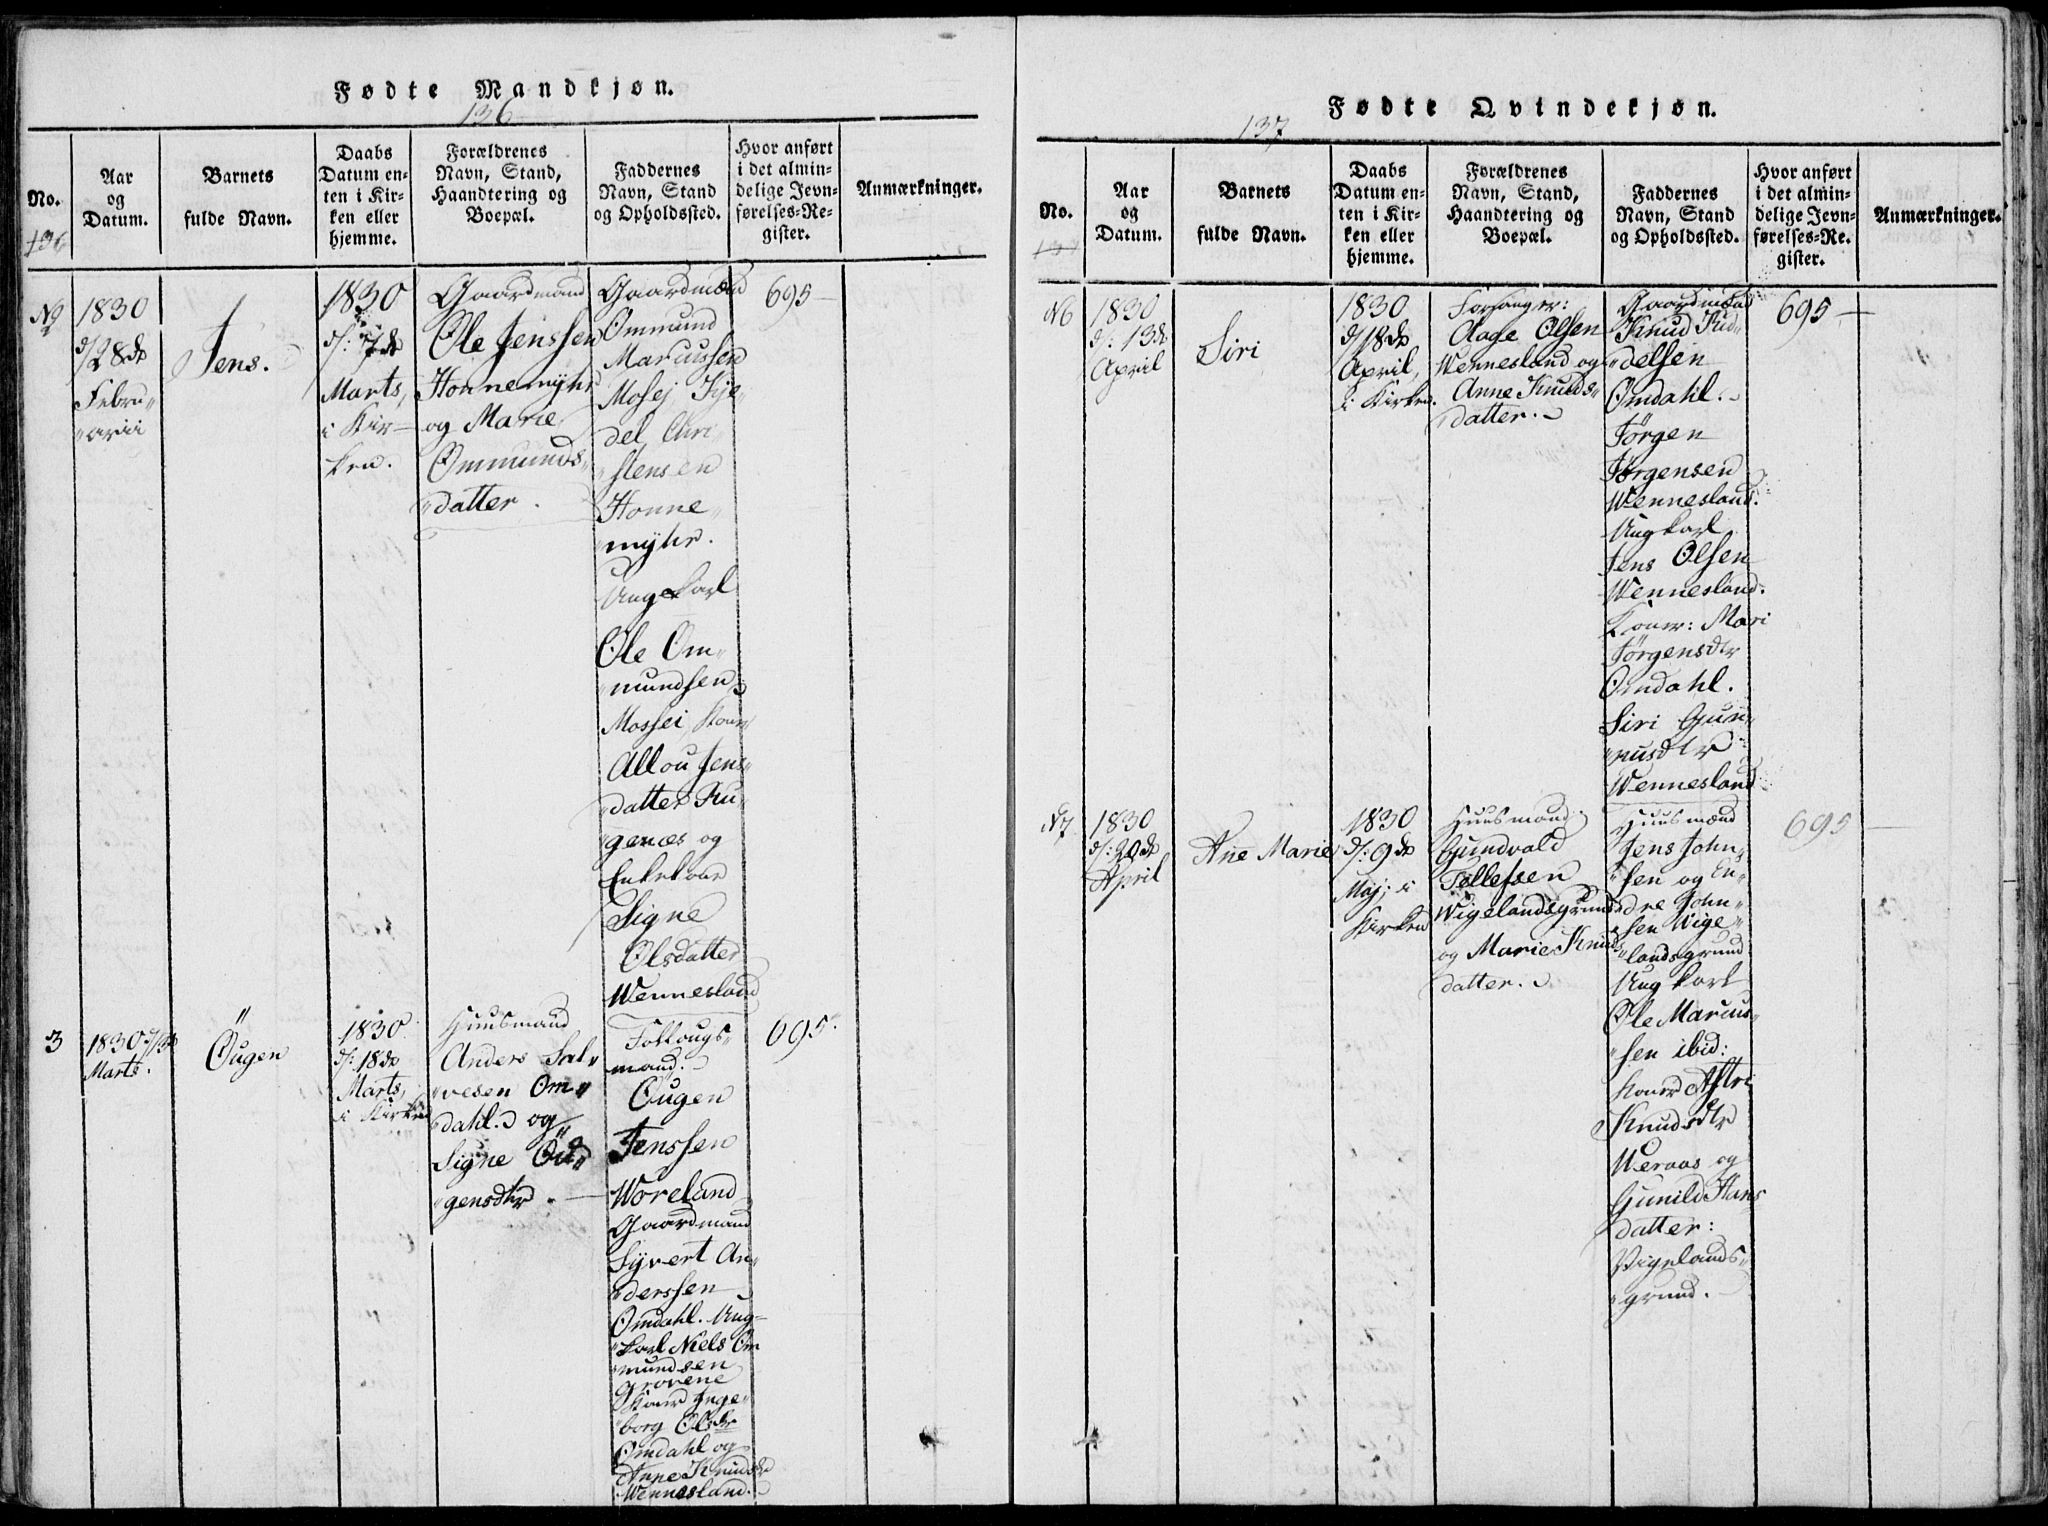 Fødte Mandkjøn.
136
No.
136
Aar
og
Datum.
Barnets
fulde Navn.
Daabs
Datum en-
ten i Kir-
ken eller
hjemme.
Forældrenes
Navn, Stand,
Haandtering og
Boepæl.
Faddernes
Navn, Stand
og Opholdssted.
Hvor anført
i det almin-
delige Jevn-
førelses-Re-
gister.
Anmærkninger.
N2
1830
d/28de
Febru„
„arii
Jens.
1830
d/: 7de
Marts,
i Kir-
ken.
Gaardmand
Ole Jenssen
Honnemyhr
og Marie
Ommunds„
„datter.
Gaardmænd
Ommund
Marcussen
Mosej, Kje„
del Chri„
„stensen
Honne„
„myhr.
Ungekarl
Ole Om„
„mundsen
Mossei, Koner
Allou Jens„
„datter Ku„
„genæs og
Enkekone
Signe
Olsdatter
Wennesland
695-
3
1830 d/13de
Marts.
Öugen
1830
d/: 18de
Marts,
i Kirken
Huusmand
Anders Sal„
„vesen Om„
„dahl. og
Signe Öu„
„gensdtr.
Tollougs„
mand.
Öugen
Jenssen
Woreland
Gaardmand
Syvert An„
„derssen
Omdahl. Ung„
„karl Niels Om
„mundsen
Grovene
Koner Inge„
„borg Olsdr
Omdahl og
Anne Knudsdr
Wennesland.
695.
Fødte Qvindekjøn.
137
No.
137
Aar
og
Datum.
Barnets
fulde Navn.
Daabs
Datum en-
ten i Kir-
ken eller
hjemme.
Forældrenes
Navn, Stand,
Haandtering og
Boepæl.
Faddernes
Navn, Stand
og Opholdssted.
Hvor anført
i det almin-
delige Jevn-
førelses-Re-
gister.
Anmærkninger.
N6
1830
d/: 13de
April
Siri
1830
d/18de
April,
i Kirken.
Forsanger:
Aage Olsen
Wennesland og
Anne Knuds„
„datter.
Gaardmænd
Knud Kid„
„delsen
Omdahl.
Jörgen
Jörgensen
Wennesland.
Ungkarl
Jens Olsen
Wennesland.
Koner: Mari
Jörgensdtr
Omdahl.
Siri Gun„
„nusdtr
Wennesland
695-
N7
1830
d/: 20de
April
Ane Marie
1830
d/: 9de
Maj; i
Kirken
Huusmand.
Gundvald
Tellefsen
Wigelandsgrund
og Marie Knuds„
datter.
Huusmænd
Jens John„
„sen og En„
„dre John„
„sen Wige„
„landsgrund
Ungkarl
Ole Marcus„
„sen ibid:
koner Astri
Knudsdtr
Weraas og
Gunild Hans
datter:
Vigelands„
„grund.
695